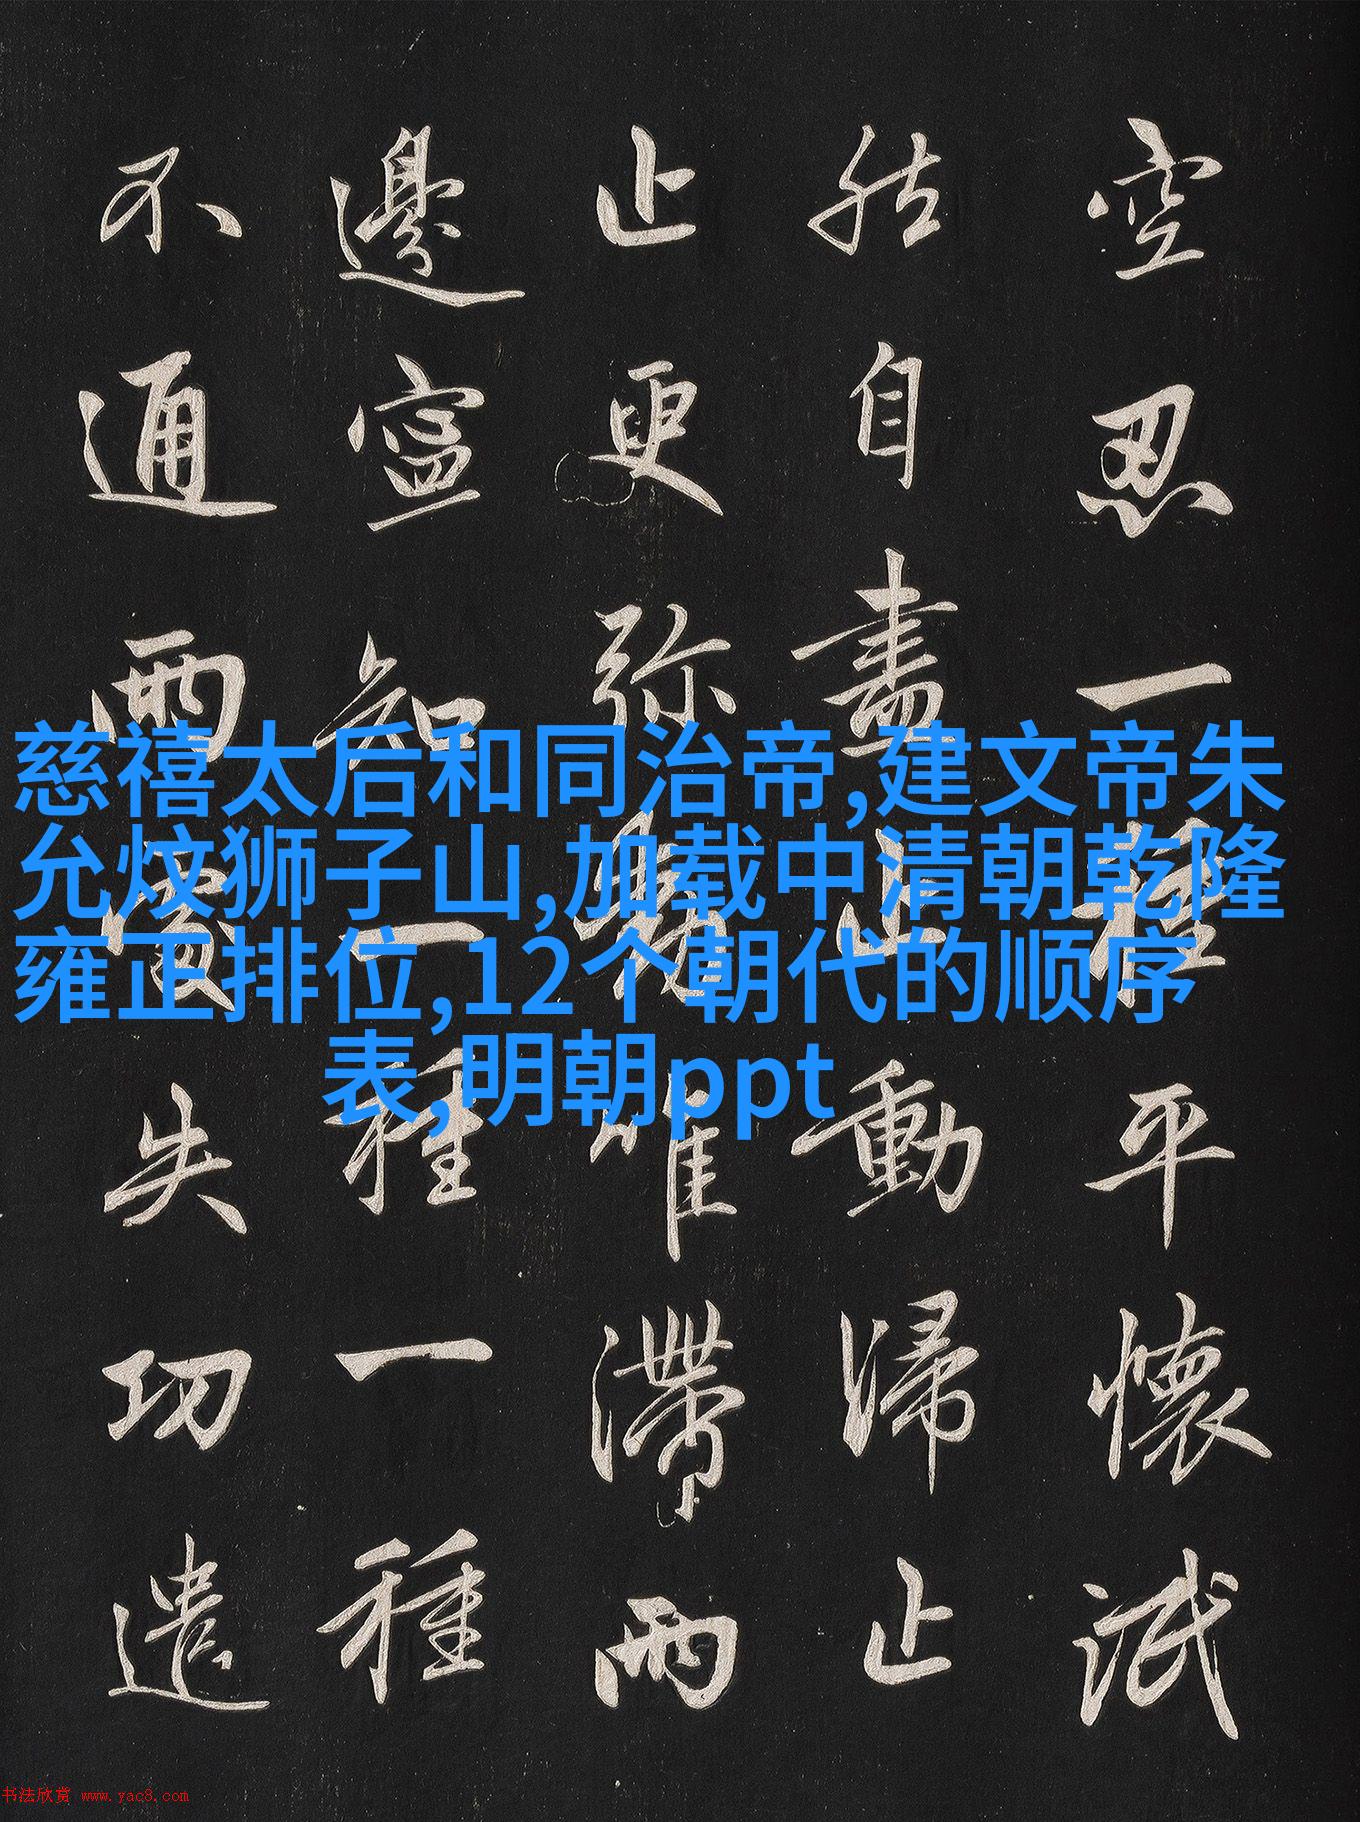 空忍一種平懷泯
然自盡止動歸止
止更弥動唯滯兩
邊寧知一種一種
不通兩處失功遣
慈禧太后和同治帝,建文帝朱
允炆狮子山,加载中清朝乾隆
雍正排位,12个朝代的顺序
表,明朝ppt
书法欣赏 www.yac8.com